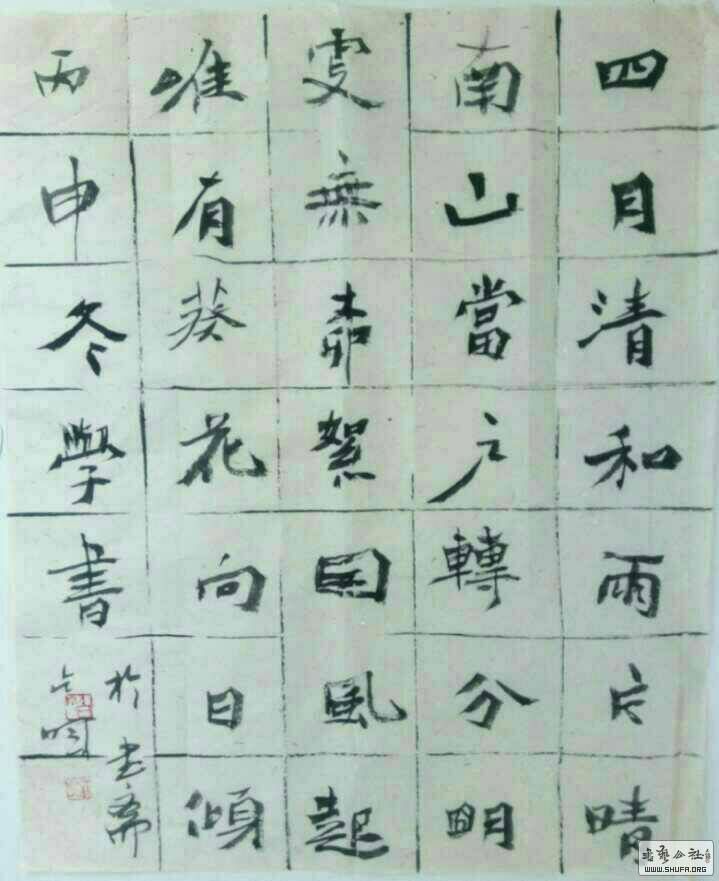 四月清和雨乍晴
南山當户轉分明
更無柳絮因風起
惟有葵花向日傾
丙申冬學書
於书斋
WWW.SHUFA.ORG